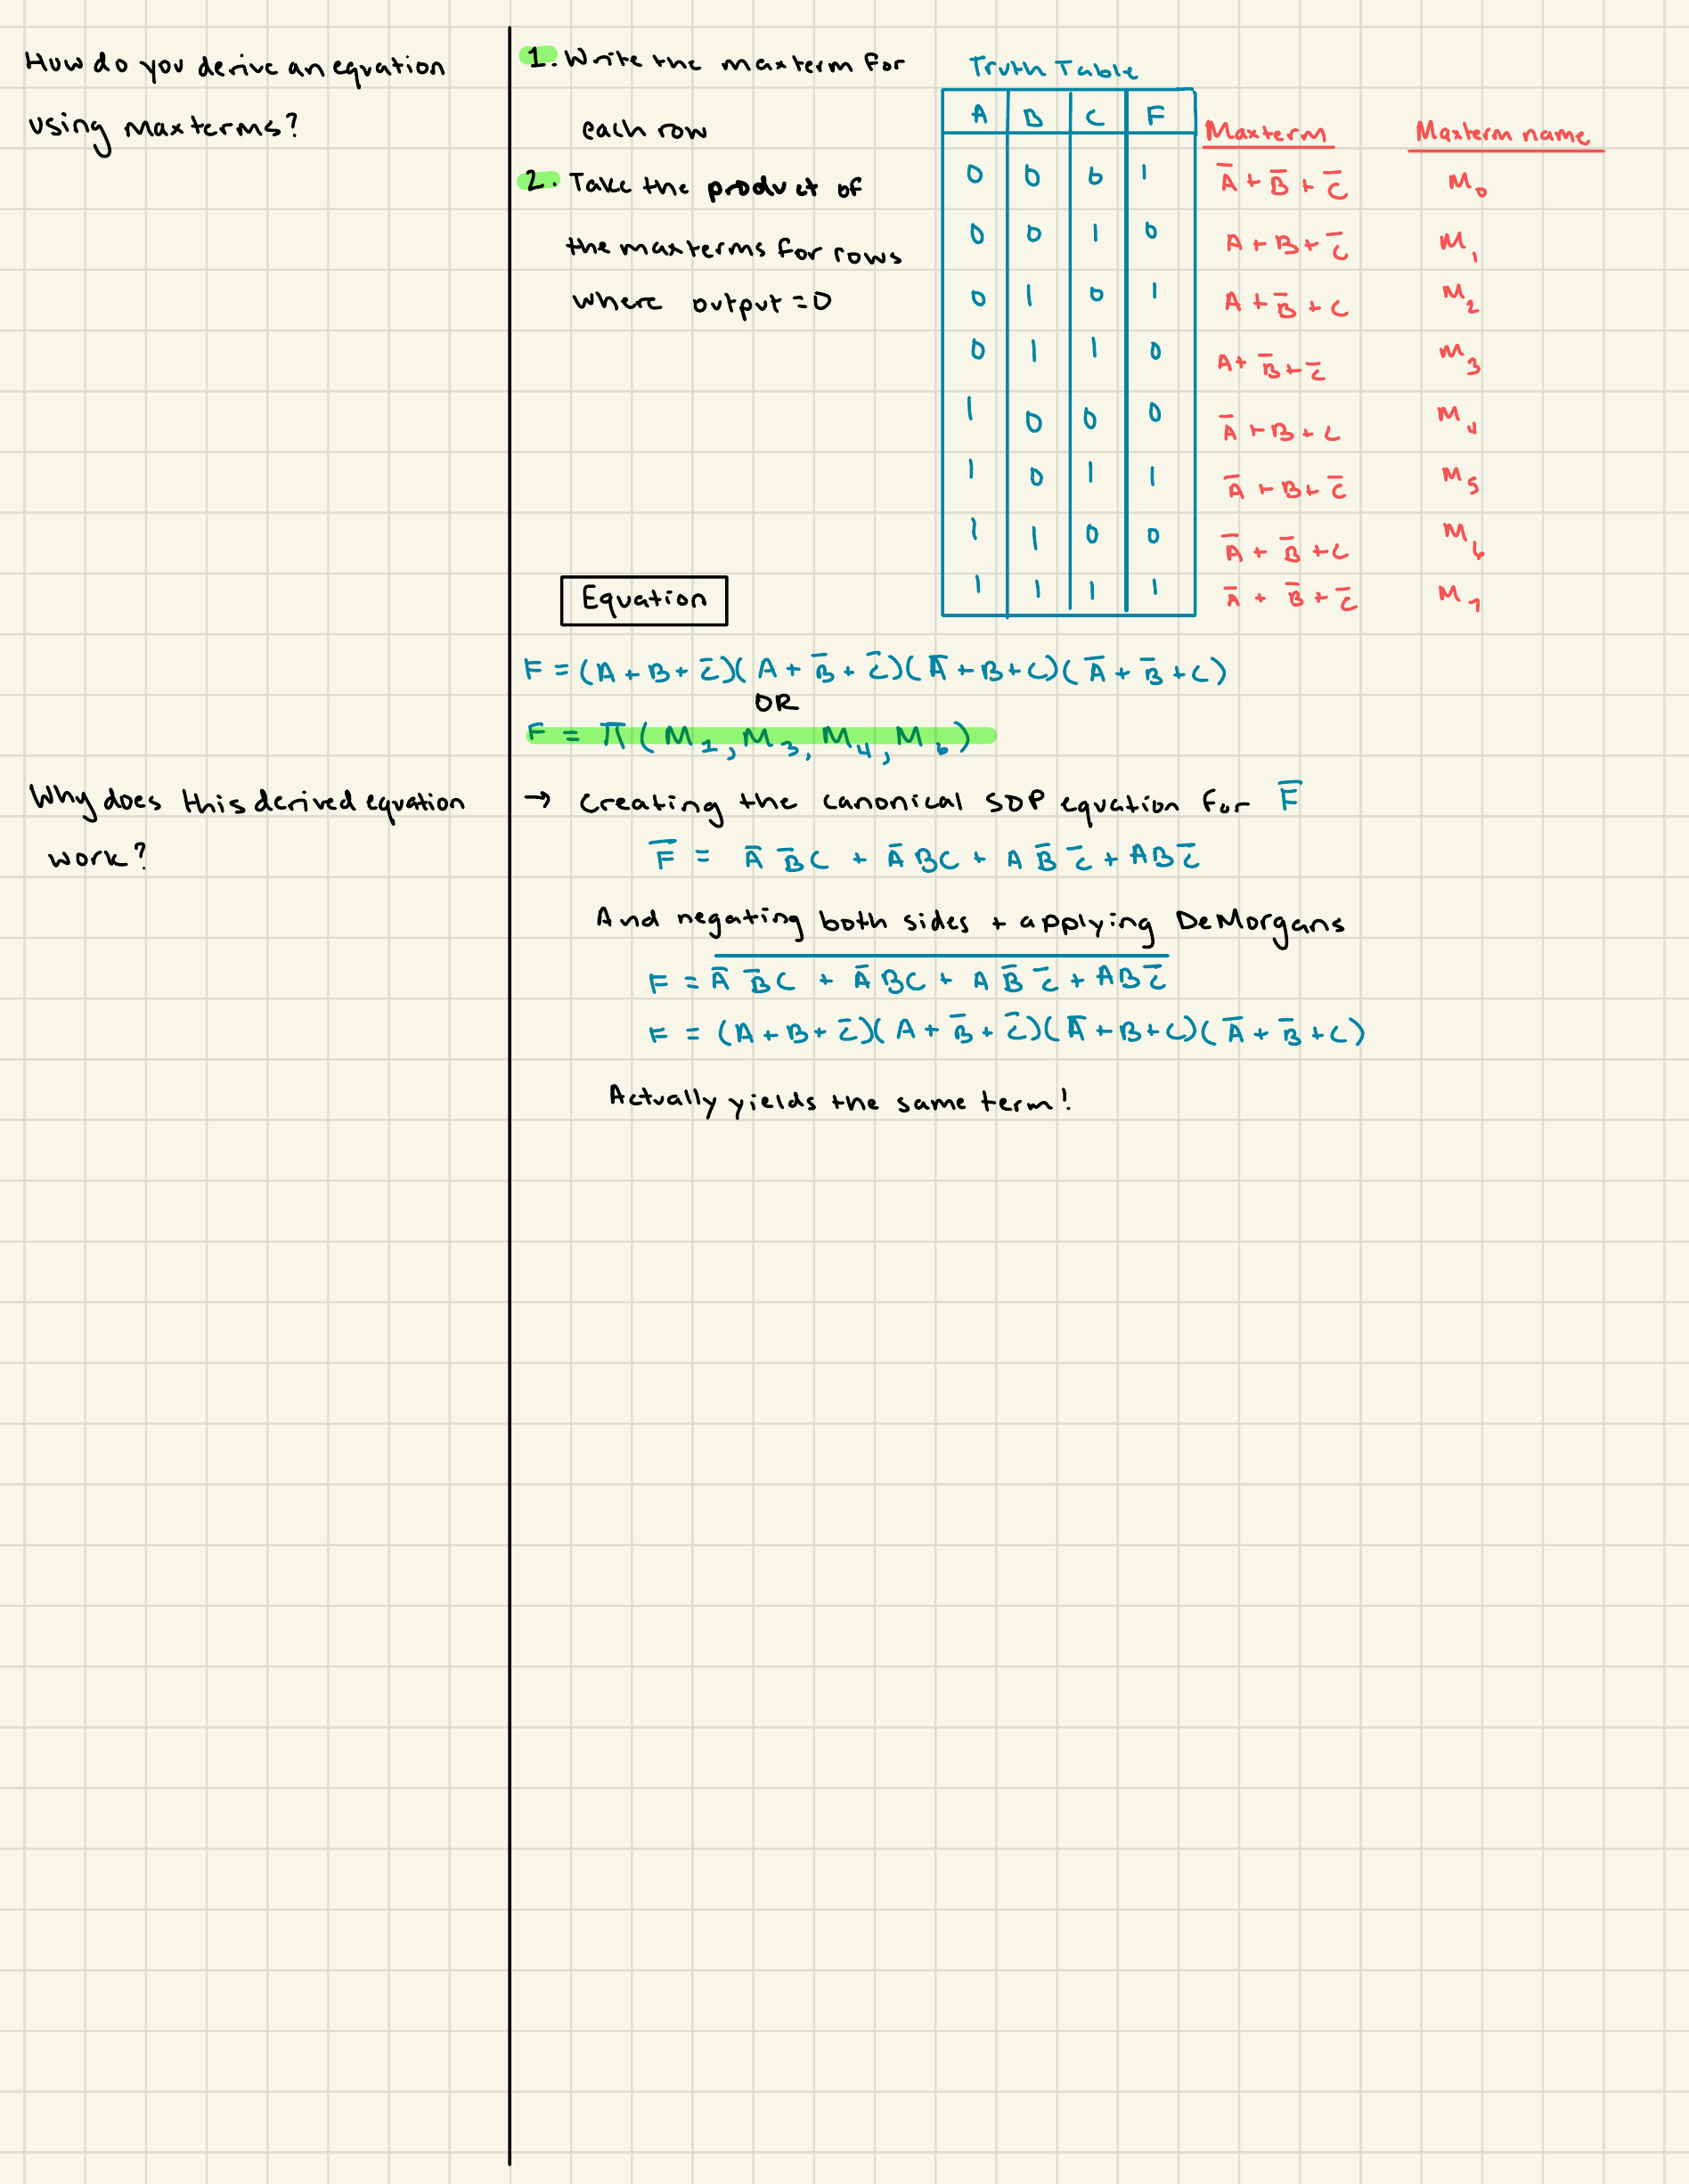 How do you derive an equation
using maxterms?
1. Write the maxterm for
each row
2. Take the product of
the maxterms for rows
where output = 0
Truth Table
A B C F Maxterm Maxterm name
0 0 0 1 A̅ + B̅ + C̅ M₀
0 0 1 0 A + B + C̅ M₁
0 1 0 1 A + B̅ + C M₂
0 1 1 0 A + B̅ + C̅ M₃
1 0 0 0 A̅ + B + C M₄
1 0 1 1 A̅ + B + C̅ M₅
1 1 0 0 A̅ + B̅ + C M₆
1 1 1 1 A̅ + B̅ + C̅ M₇
Equation
F = (A + B + C̅)(A + B̅ + C̅)(A̅ + B + C)(A̅ + B̅ + C)
OR
F = Π(M₁, M₃, M₄, M₆)
Why does this derived equation
work?
→ Creating the canonical SOP equation for F̅
F̅ = A̅ B̅ C + A̅ B C + A B̅ C̅ + A B C̅
And negating both sides + applying DeMorgans
F = \overline{A̅ B̅ C + A̅ B C + A B̅ C̅ + A B C̅}
F = (A + B + C̅)(A + B̅ + C̅)(A̅ + B + C)(A̅ + B̅ + C)
Actually yields the same term!